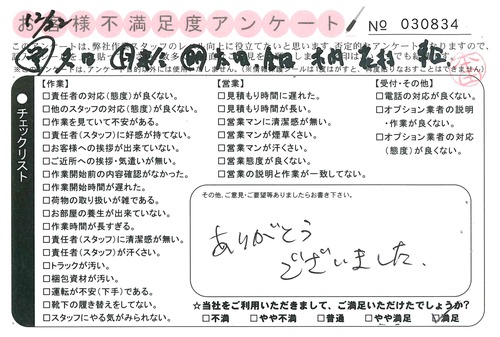 12/12
お客様不満足度アンケート
No 030834
【作業】
□責任者の対応(態度)が良くない。
□他のスタッフの対応(態度)が良くない。
□作業を見ていて不安がある。
□責任者(スタッフ)に好感が持てない。
□お客様への挨拶が出来ていない。
□ご近所への挨拶・気遣いが無い。
□作業開始前の内容確認がなかった。
□作業開始時間が遅れた。
□荷物の取り扱いが雑である。
□お部屋の養生が出来ていない。
□作業時間が長すぎる。
□責任者(スタッフ)に清潔感が無い。
□責任者(スタッフ)が汗くさい。
□トラックが汚い。
□梱包資材が汚い。
□運転が不安(下手)である。
□靴下の履き替えをしてない。
□スタッフにやる気がみられない。
【営業】
□見積もり時間に遅れた。
□見積もり時間が長い。
□営業マンに清潔感が無い。
□営業マンが煙草くさい。
□営業マンが汗くさい。
□営業態度が良くない。
□営業の説明と作業が一致してない。
【受付・その他】
□電話の対応が良くない。
□オプション業者の説明
・作業が良くない。
□オプション業者の対応
(態度)が良くない。
チェックリスト
その他、ご意見・ご要望等ありましたらお書き下さい。
ありがとう
ございました。
☆当社をご利用いただきまして、ご満足いただけたでしょうか?
□不満 □やや不満 □普通 □やや満足 □満足